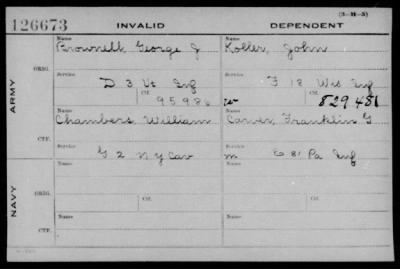 (3-H-5)
126673 INVALID DEPENDENT
Name Name
Brownell, George J Koller, John
ORIG.
Service Service
D 3 Vt Inf F 18 Wis Inf
Ctf. Ctf.
95986 829481
ARMY
Name Name
Chambers, William Carver, Franklin G
CTF.
Service Service
G 2 N Y Cav m E 81 Pa Inf
Name Name
ORIG.
Ctf. Ctf.
NAVY
Name Name
CTF.